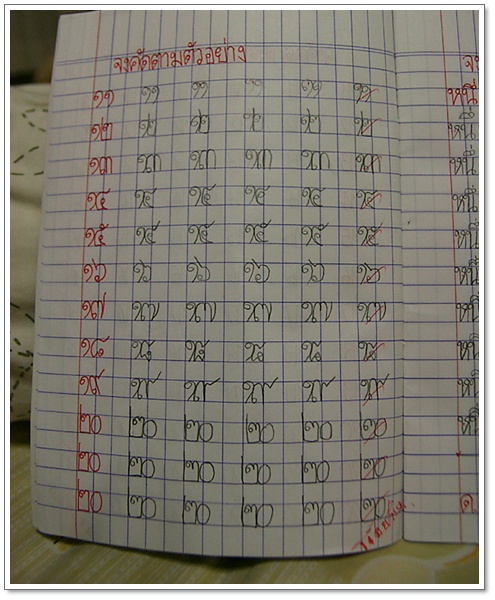 จงคัดตามตัวอย่าง
๑๑ ๑๑ ๑๑ ๑๑ ๑๑ ๑๑
๑๒ ๑๒ ๑๒ ๑๒ ๑๒ ๑๒
๑๓ ๑๓ ๑๓ ๑๓ ๑๓ ๑๓
๑๔ ๑๔ ๑๔ ๑๔ ๑๔ ๑๔
๑๕ ๑๕ ๑๕ ๑๕ ๑๕ ๑๕
๑๖ ๑๖ ๑๖ ๑๖ ๑๖ ๑๖
๑๗ ๑๗ ๑๗ ๑๗ ๑๗ ๑๗
๑๘ ๑๘ ๑๘ ๑๘ ๑๘ ๑๘
๑๙ ๑๙ ๑๙ ๑๙ ๑๙ ๑๙
๒๐ ๒๐ ๒๐ ๒๐ ๒๐ ๒๐
๒๐ ๒๐ ๒๐ ๒๐ ๒๐ ๒๐
๒๐ ๒๐ ๒๐ ๒๐ ๒๐ ๒๐